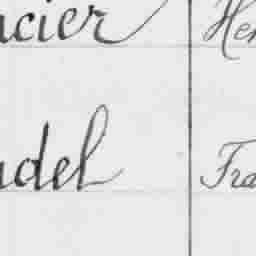 acier Hen
udel Fra